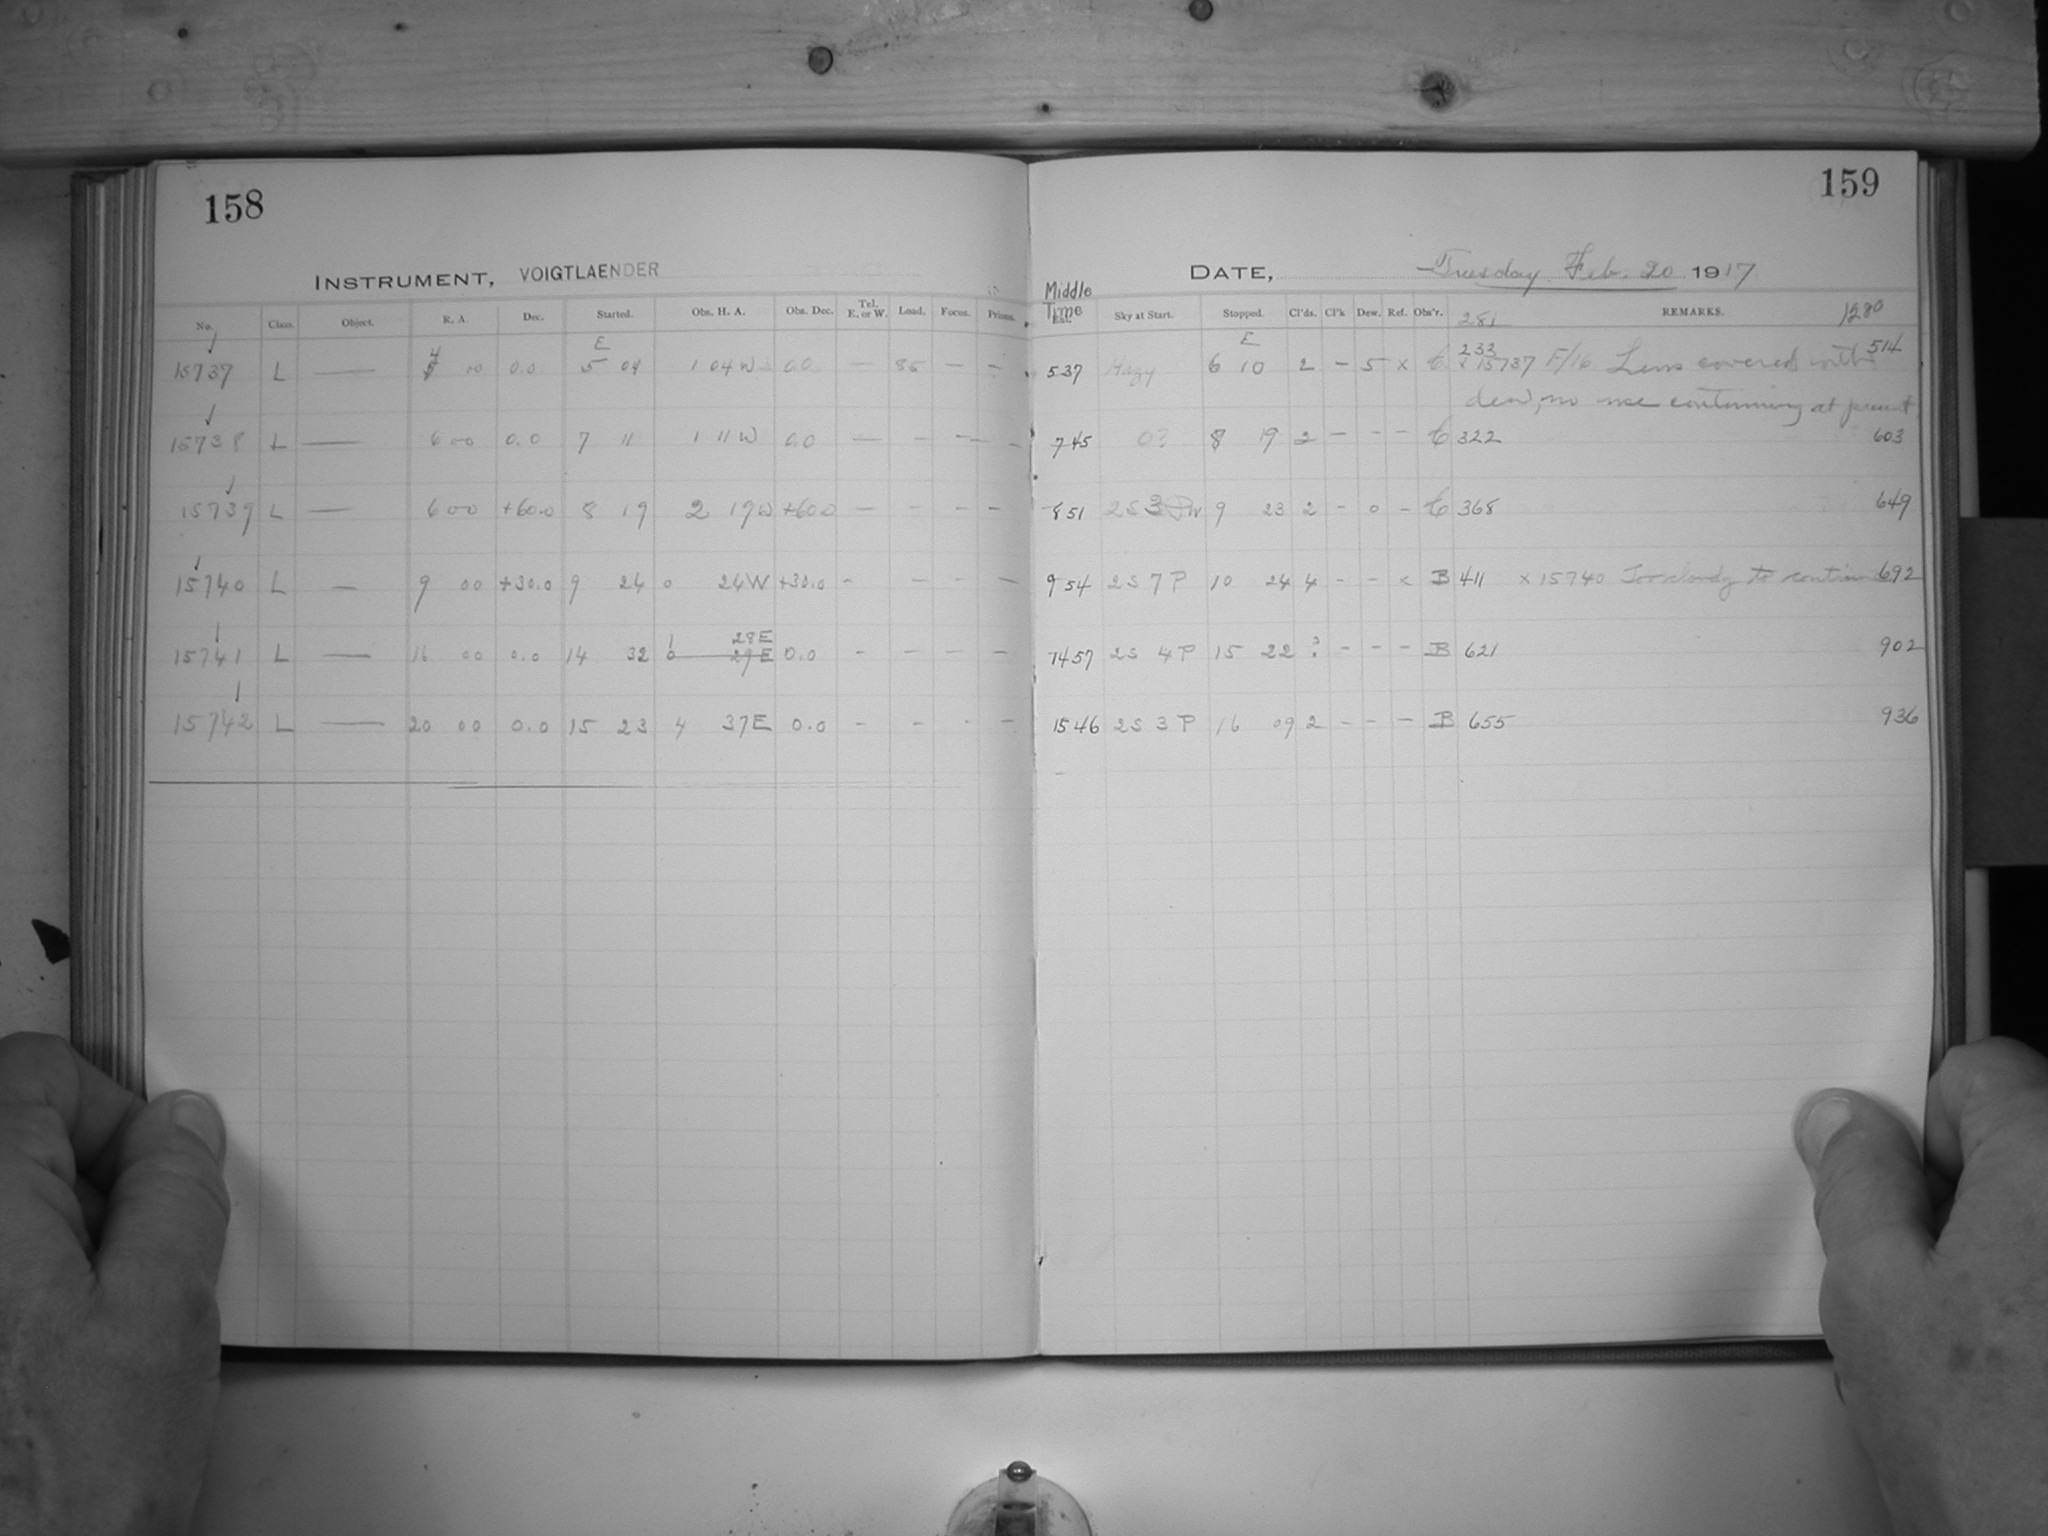 158
159
INSTRUMENT, VOIGTLAENDER
DATE, Tuesday Feb. 20 1917
No. Class. Object. R. A. Dec. Started. Obs. H. A. Obs. Dec. Tel. E. or W. Load. Focus. Prisms. Middle Time Sky at Start. Stopped. Cl'ds. Cl'k Dew. Ref. Obs'r. 281 REMARKS. 1280
E E
15737 L — 4 00 0.0 5 04 1 04 W 0.0 — 85 — — 5 37 Hazy 6 10 2 — 5 x C 233 x 15737 F/16 Lens covered with 514
dew, no use continuing at present
15738 L — 6 00 0.0 7 11 1 11 W 0.0 — — — — 7 45 0? 8 19 2 — — — C 322 603
15739 L — 6 00 +60.0 8 19 2 19 W +60.0 — — — — 8 51 2 S 3 9 23 2 — 0 — C 368 649
15740 L — 9 00 +30.0 9 24 0 24 W +30.0 — — — — 9 54 2 S 7 P 10 24 4 — — x B 411 x 15740 Too cloudy to continue 692
1 28 E
15741 L — 16 00 0.0 14 32 0 29 E 0.0 — — — — 14 57 2 S 4 P 15 22 ? — — — B 621 902
15742 L — 20 00 0.0 15 23 4 37 E 0.0 — — — — 15 46 2 S 3 P 16 09 2 — — — B 655 936